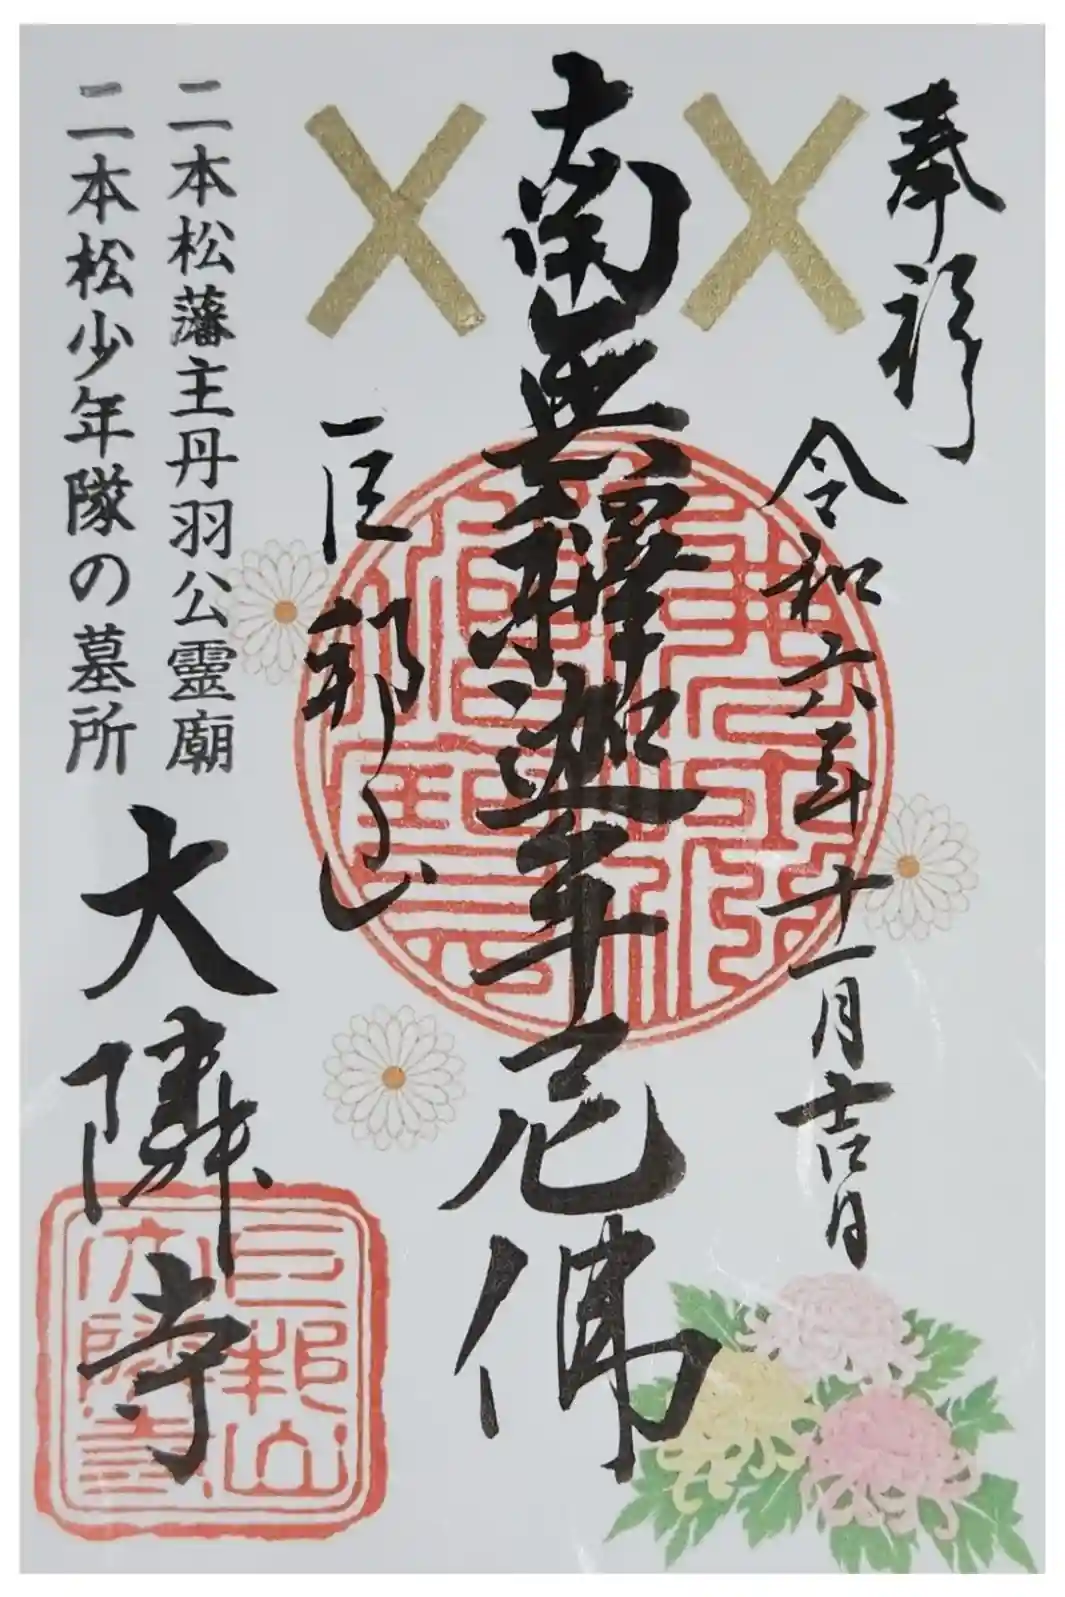 奉拝
令和六年十一月吉日
南無釋迦牟尼佛
巨邦山
二本松藩主丹羽公靈廟
二本松少年隊の墓所
大隣寺
巨邦山
大隣寺